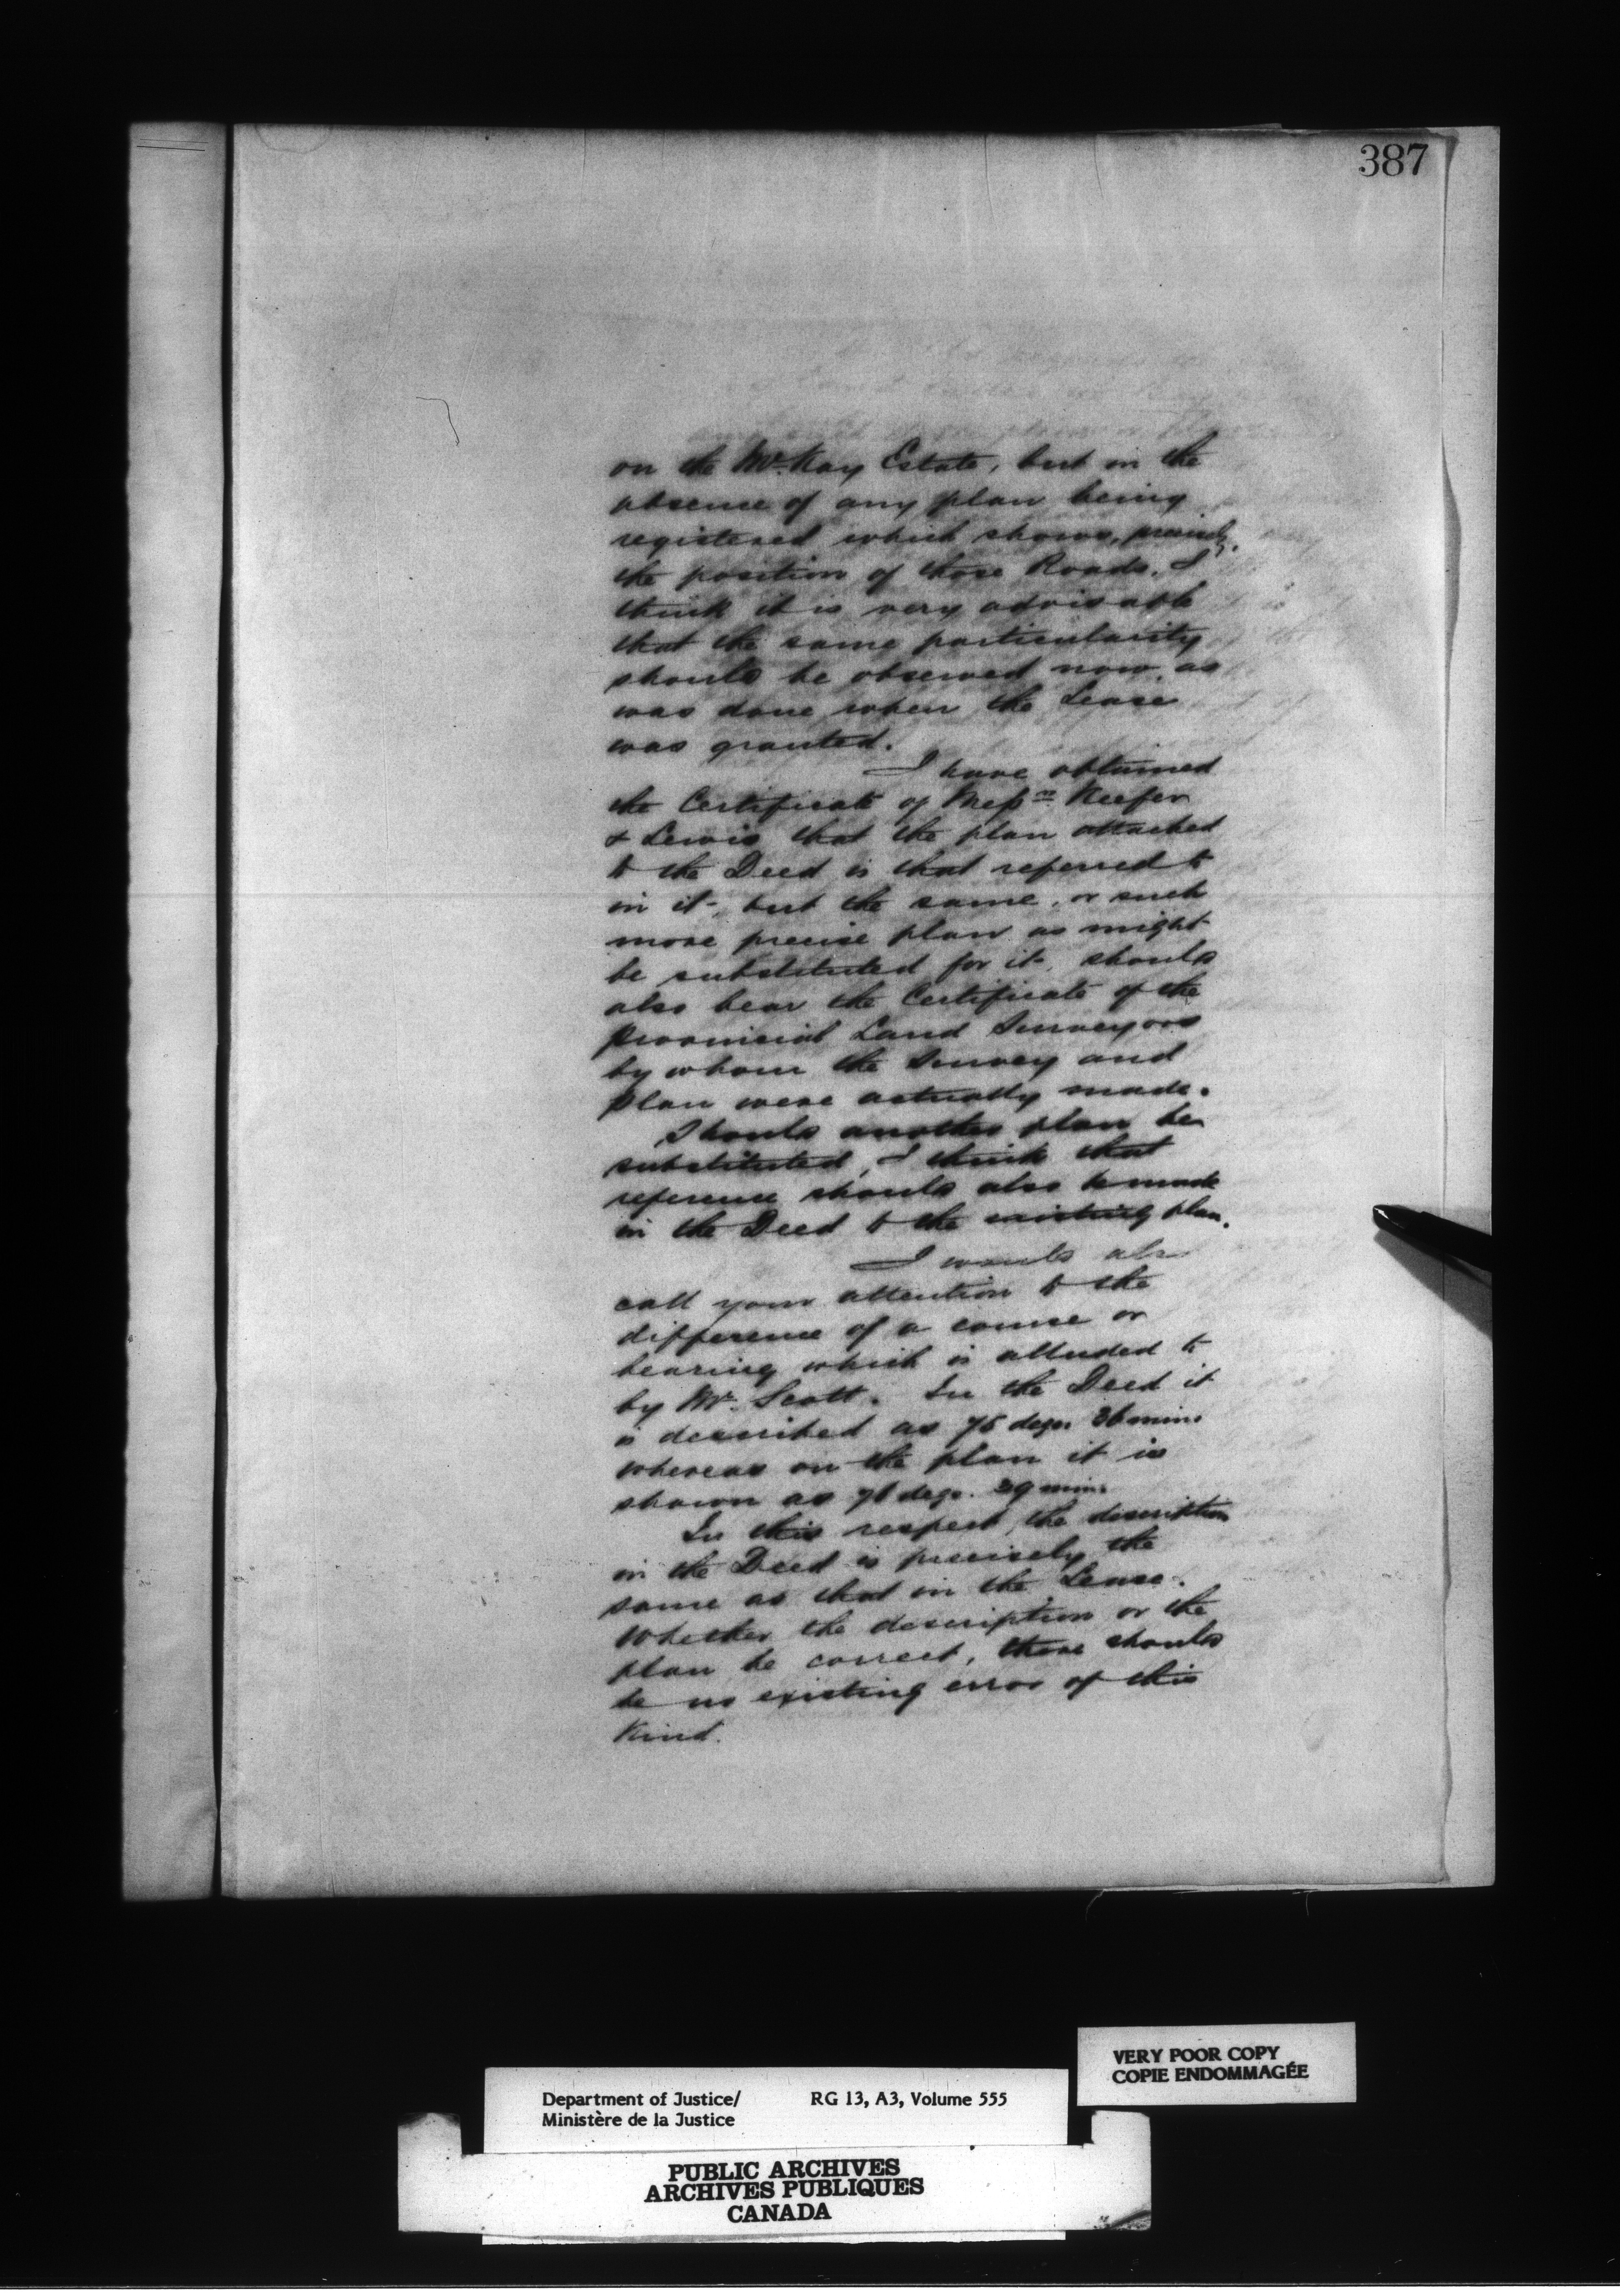 387
on the McKay Estate, but in the
absence of any plan being
registered which shows, precisely,
the position of those Roads, I
think it is very advisable
that the same particularity
should be observed now, as
was done when the Lease
was granted.
I have obtained
the Certificate of Messrs Keefer
& Lewis that the plan attached
to the Deed is that referred to
in it, but the same, or such
more precise plan as might
be substituted for it, should
also bear the Certificate of the
Provincial Land Surveyors
by whom the Survey and
plan were actually made.
Should another plan be
substituted, I think that
reference should also be made
in the Deed to the existing plan.
I would also
call your attention to the
difference of a course or
bearing which is alluded to
by Mr. Scott. In the Deed it
is described as degs. mins
whereas on the plan it is
shown as degs. mins
In this respect, the description
in the Deed is precisely the
same as that in the Lease.
Whether the description or the
plan be correct, there should
be no existing error of this
Kind.
VERY POOR COPY
COPIE ENDOMMAGÉE
Department of Justice/ RG 13, A3, Volume 555
Ministère de la Justice
PUBLIC ARCHIVES
ARCHIVES PUBLIQUES
CANADA